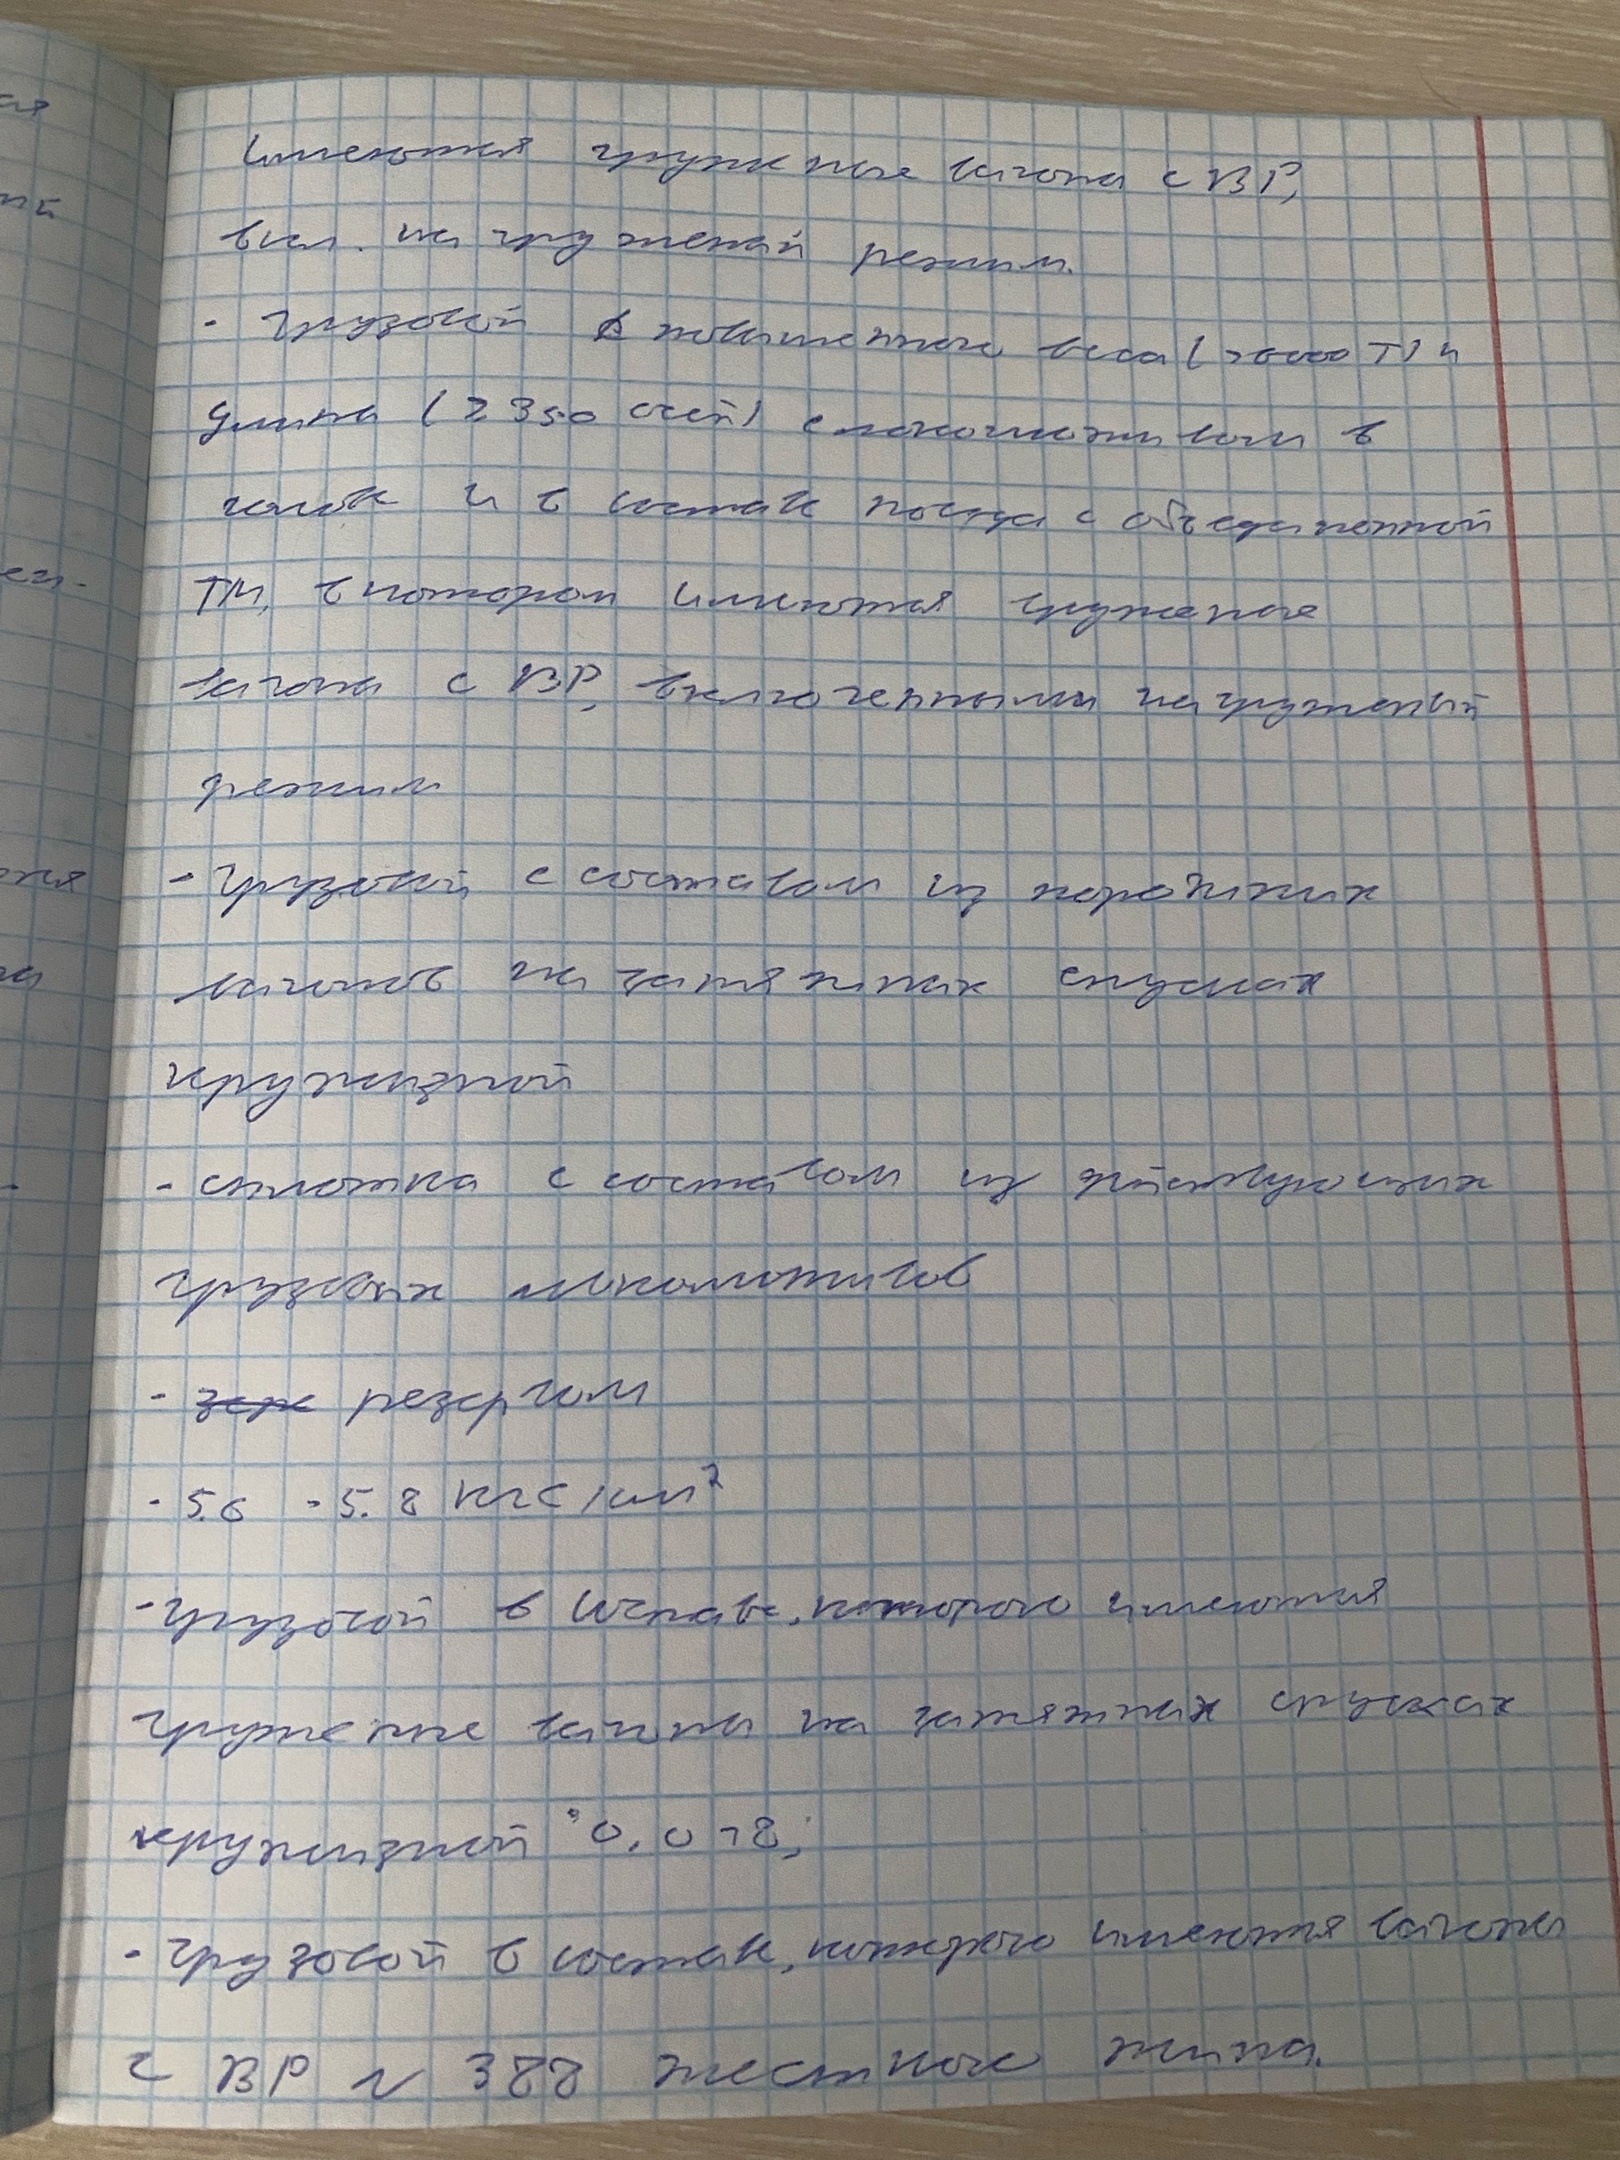 имеются груженые вагоны с ВР,
вкл. на груженый режим.
- Грузовой повышенного веса (>6000 т) и
длины (>350 осей) с локомотивом в
голове и в составе поезда с объединенной
ТМ, в котором имеются груженые
вагоны с ВР, включенными на груженый
режим
- Грузовой с составом из порожних
вагонов на затяжных спусках
крутизной
- сплотка с составом из действующих
грузовых локомотивов
- резервом
- 5.6 - 5.8 кгс/см²
- Грузовой в составе, которого имеются
груженые вагоны на затяжных спусках
крутизной 0,018;
- грузовой в составе, которого имеются вагоны
с ВР № 388 жесткого типа.